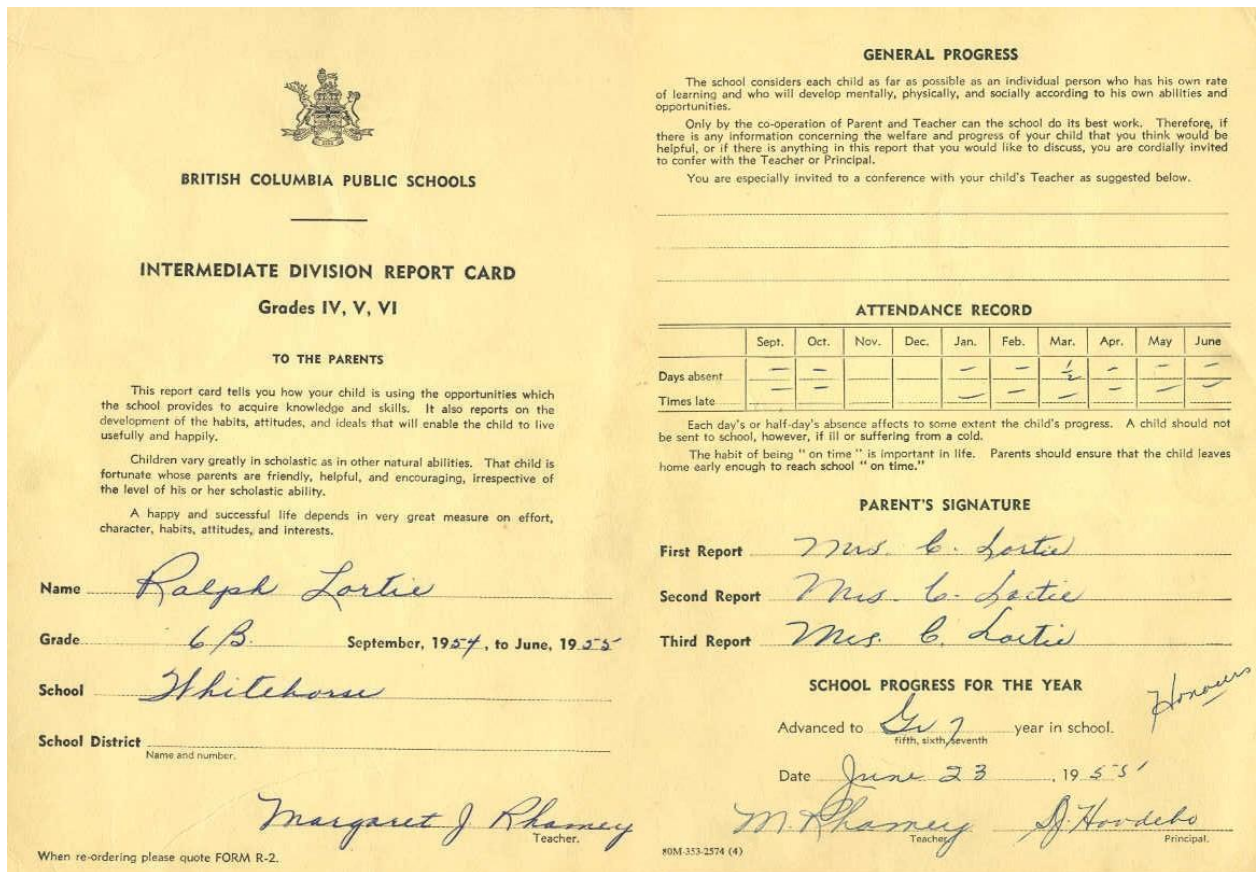 BRITISH COLUMBIA PUBLIC SCHOOLS
INTERMEDIATE DIVISION REPORT CARD
Grades IV, V, VI
TO THE PARENTS
This report card tells you how your child is using the opportunities which
the school provides to acquire knowledge and skills. It also reports on the
development of the habits, attitudes, and ideals that will enable the child to live
usefully and happily.
Children vary greatly in scholastic as in other natural abilities. That child is
fortunate whose parents are friendly, helpful, and encouraging, irrespective of
the level of his or her scholastic ability.
A happy and successful life depends in very great measure on effort,
character, habits, attitudes, and interests.
Name Ralph Lortie
Grade 6 B. September, 1954, to June, 1955
School Whitehorse
School District
Name and number.
Margaret J Rhamey
Teacher.
When re-ordering please quote FORM R-2.
GENERAL PROGRESS
The school considers each child as far as possible as an individual person who has his own rate
of learning and who will develop mentally, physically, and socially according to his own abilities and
opportunities.
Only by the co-operation of Parent and Teacher can the school do its best work. Therefore, if
there is any information concerning the welfare and progress of your child that you think would be
helpful, or if there is anything in this report that you would like to discuss, you are cordially invited
to confer with the Teacher or Principal.
You are especially invited to a conference with your child's Teacher as suggested below.
ATTENDANCE RECORD
Sept. Oct. Nov. Dec. Jan. Feb. Mar. Apr. May June
Days absent – – – – ½ – – –
Times late – – – – – – – –
Each day's or half-day's absence affects to some extent the child's progress. A child should not
be sent to school, however, if ill or suffering from a cold.
The habit of being "on time" is important in life. Parents should ensure that the child leaves
home early enough to reach school "on time."
PARENT'S SIGNATURE
First Report Mrs. C. Lortie
Second Report Mrs. C. Lortie
Third Report Mrs. C. Lortie
SCHOOL PROGRESS FOR THE YEAR
Honours
Advanced to Gr 7 year in school.
fifth, sixth, seventh
Date June 23, 1955
M. Rhamey
Teacher.
Principal.
80M-353-2574 (4)